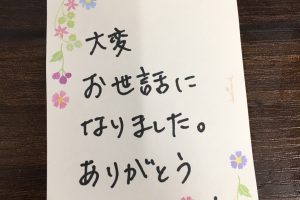 大変
お世話に
なりました。
ありがとう